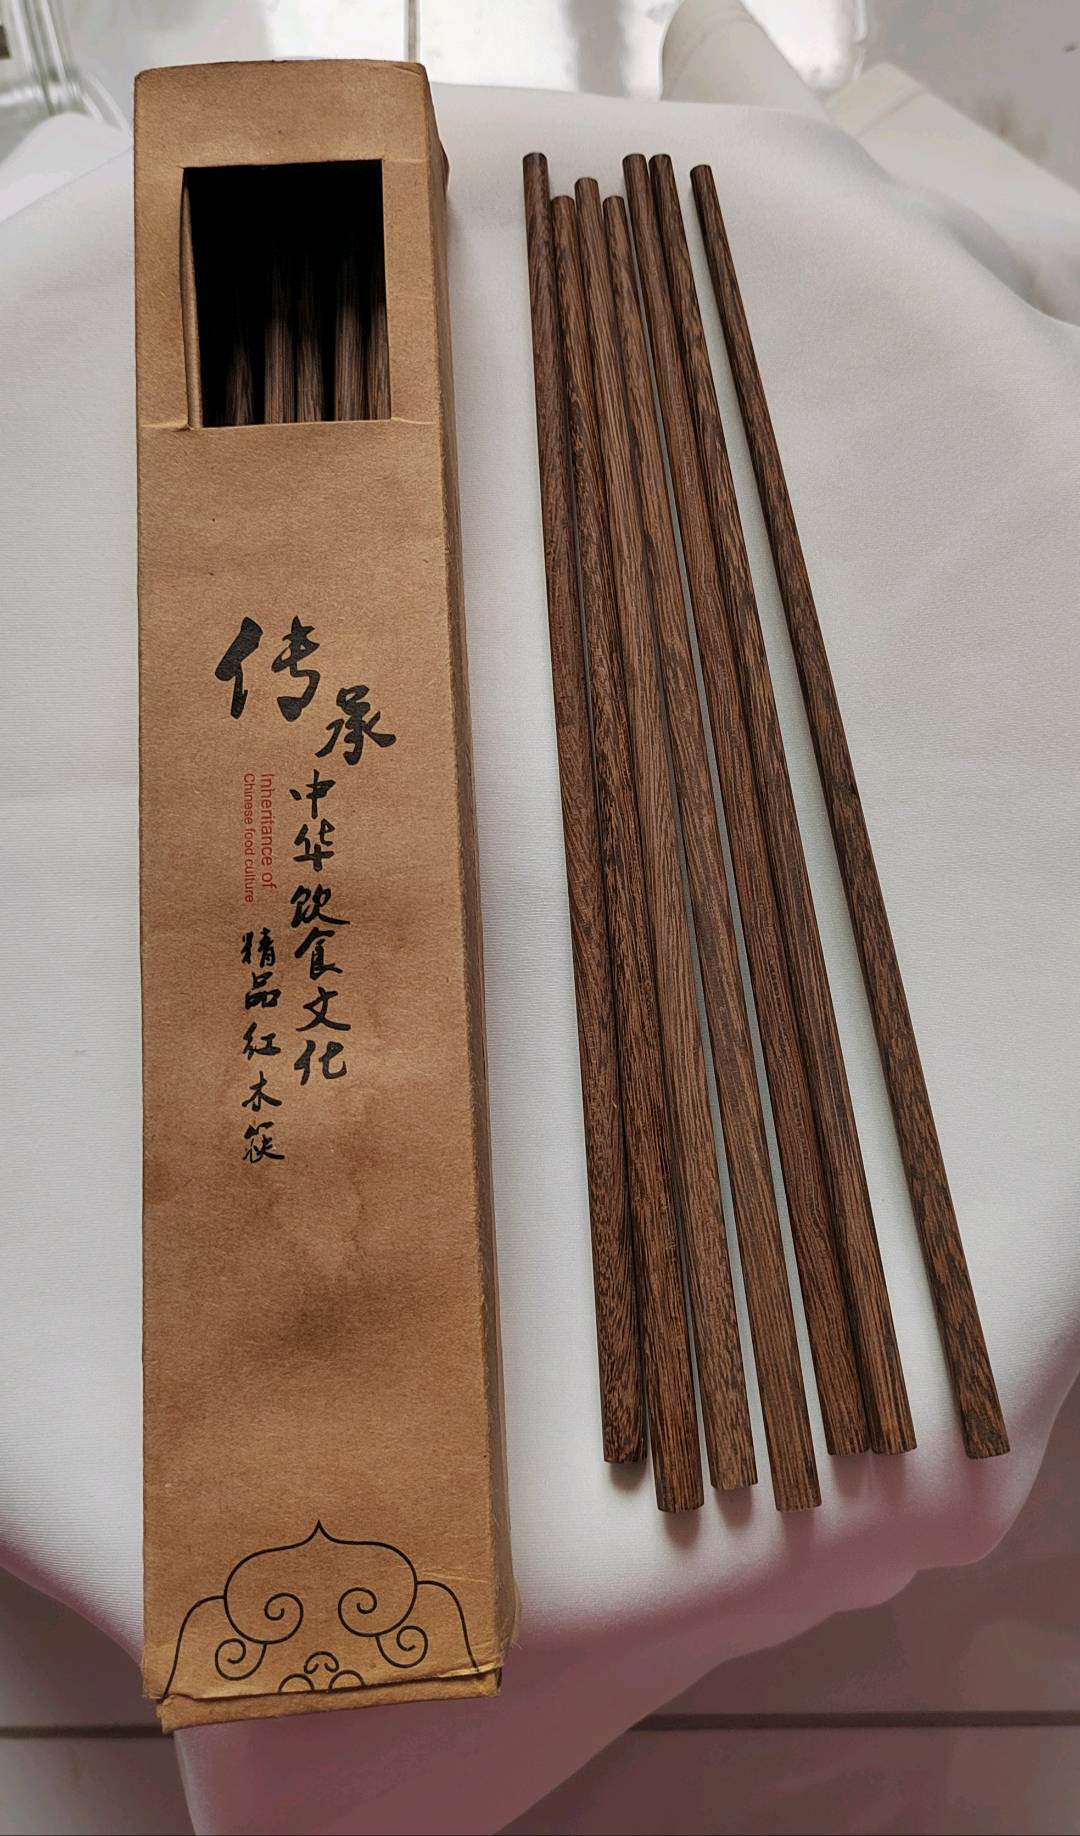 传承
中华饮食文化
Inheritance of
Chinese food culture
精品红木筷